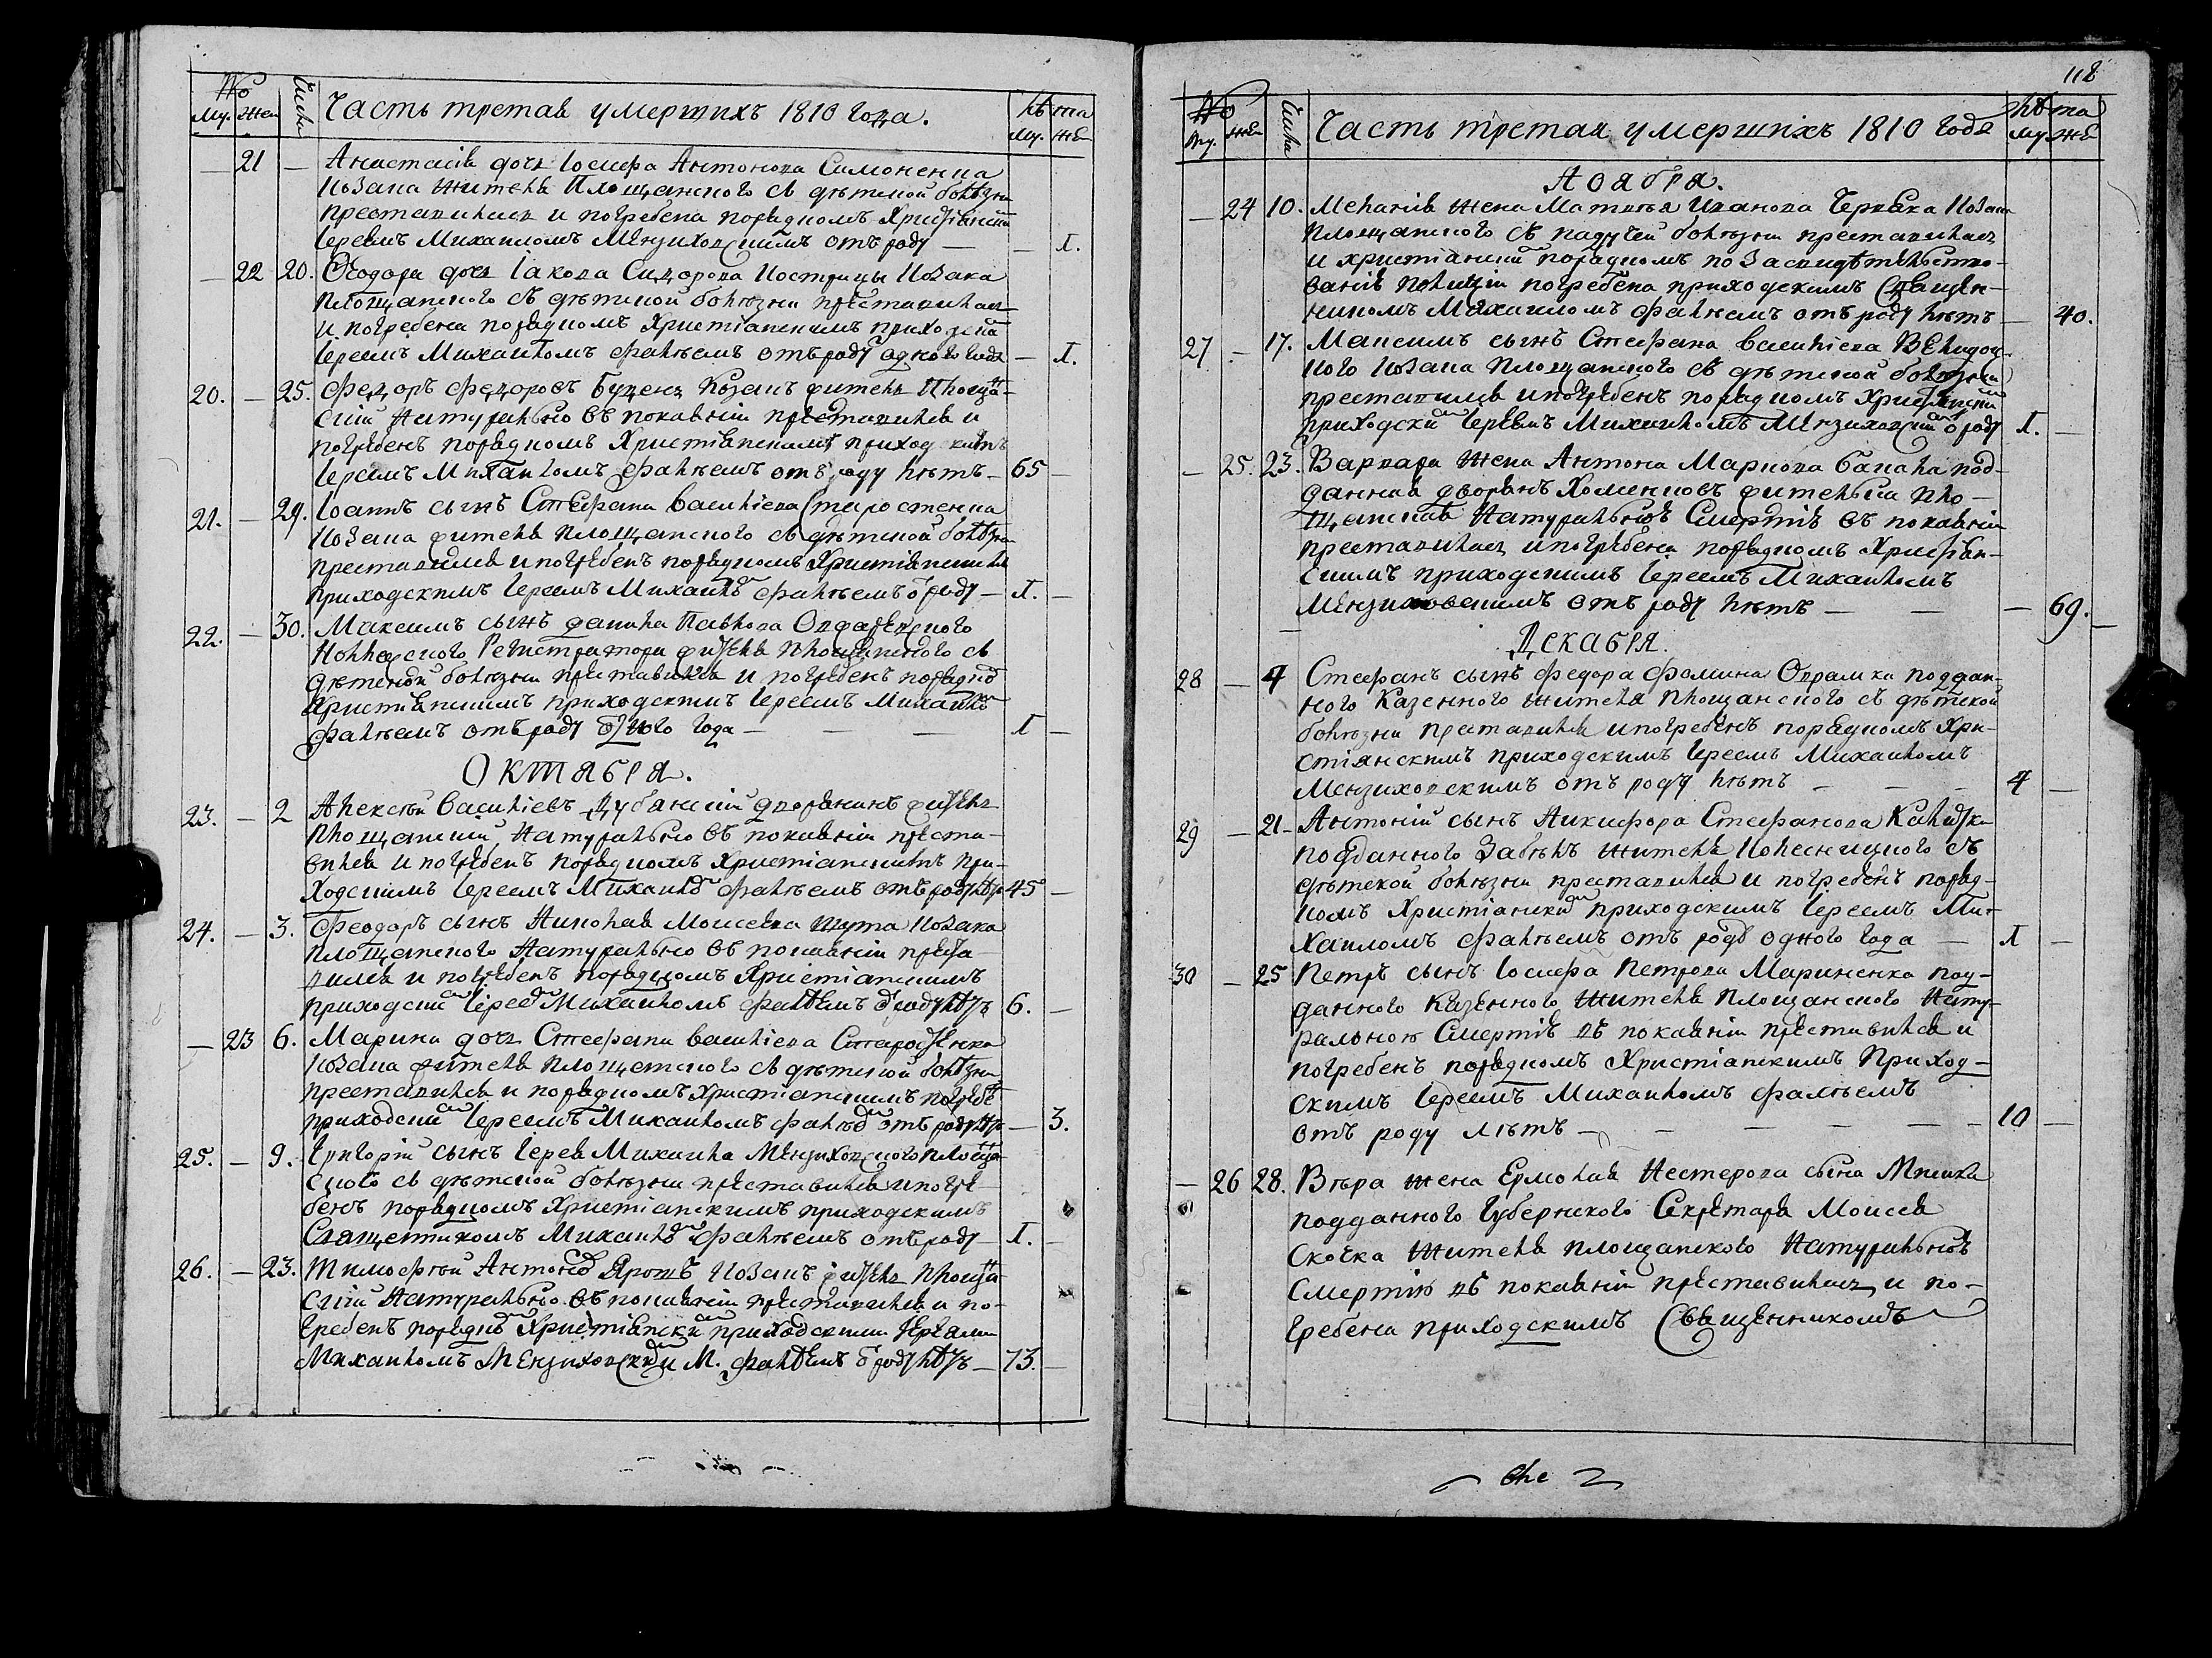 № Му. Жен Числа Часть третая умершихъ 1810 Года. Лѣта Му. Же
— 21 — Анастасія дочь Іосифа Антонова Симоненка
козака жителя Площанского съ дѣтской болѣзни
преставилася и погребена порядкомъ Христіански
Іереемъ Михаиломъ Мензиховскимъ отъ роду — — 1.
— 22 20. Ѳеодора дочь Іакова Сидорова Кострицы козака
площанского съ дѣтской болѣзни преставилась
и погребена порядкомъ Христіанскимъ приходски
Іереемъ Михаиломъ Фалѣемъ отъ роду одного года — 1.
20. — 25. Федоръ Федоровъ Буценъ козакъ житель Площан-
скій натурально въ покаяніи преставился и
погребенъ порядкомъ Христіанскимъ приходскимъ
Іереемъ Михаиломъ Фалѣемъ отъ роду лѣтъ — 65 —
21. — 29. Іоаннъ сынъ Стефана Василіева Старостенка
козака жителя площанского съ дѣтской болѣзни
преставился и погребенъ порядкомъ Христіанскимъ
приходскимъ Іереемъ Михаиломъ Фалѣемъ о роду — 1. —
22. — 30. Максимъ сынъ Данила Павлова
Колежского Регистратора жителя площанского съ
дѣтской болѣзни преставился и погребенъ порядко
Христіанскимъ приходскимъ Іереемъ Михаило
Фалѣемъ отъ роду одного года — — — 1 —
Октября.
23. — 2 Алексѣй Василіевъ Дубанскій дворянинъ житель
площанскій натурально въ покаяніи преста-
вился и погребенъ порядкомъ Христіанскимъ при-
ходскимъ Іереемъ Михаило Фалѣемъ отъ роду лѣтъ 45 —
24. — 3. Феодоръ сынъ Николая Моисеева Шута козака
площанского натурально въ покаяніи преста-
вился и погребенъ порядкомъ Христіанскимъ
приходски Іерее Михаиломъ Фалѣемъ о роду лѣтъ 6. —
— 23 6. Марина дочь Стефана Василіева Старостенка
козака жителя площанского съ дѣтской болѣзни
преставилася и порядкомъ христіанскимъ погребе
приходски Іереемъ Михаиломъ Фалѣе отъ роду лѣтъ — 3.
25. — 9. Григорій сынъ Іерея Михаила Мензиховского площан
ского съ дѣтской болѣзни преставился и погре-
бенъ порядкомъ Христіанскимъ приходскимъ
Священникомъ Михаило Фалѣемъ отъ роду — 1. —
26. — 23. Тимофѣй Антоно Ярошъ козакъ житель площан
скій натурально въ покаяніи преставился и по-
гребенъ порядко Христіански приходскими Іереями
Михаиломъ Мензиховски и М. Фалѣемъ о роду лѣтъ — 73. —
118
№ Му. Жен Числа Часть третая умершихъ 1810 Года Лѣта Му Же
Ноября.
— 24 10. Меланія жена Матвѣя Иванова Черкаса козака
площанского съ падучей болѣзни преставилась
и христіански порядкомъ по засвидѣтельство-
ванію полиціи погребена приходскимъ Священ-
никомъ Михаиломъ Фалѣемъ отъ роду лѣтъ — 40.
27 — 17. Максимъ сынъ Стефана Василіева
козака площанского съ дѣтской болѣзни
преставился и погребенъ порядкомъ Христіански
приходски Іереемъ Михаиломъ Мензиховски о роду 1. —
— 25. 23. Варвара жена Антона Маркова Бакала под-
данная дворянъ Хоменковъ жителька пло-
щанская натуральною смертію въ покаяніи
преставилась и погребена порядкомъ Христіан-
скимъ приходскимъ Іереемъ Михаиломъ
Мензиховскимъ отъ роду лѣтъ — — — 69.
Декабря.
28 — 4 Стефанъ сынъ Федора Фомина поддан-
ного казенного жителя площанского съ дѣтской
болѣзни преставился и погребенъ порядкомъ Хри-
стіанскимъ приходскимъ Іереемъ Михаиломъ
Мензиховскимъ отъ роду лѣтъ — — — 4 —
29 — 21. Антоній сынъ Никифора Стефанова
подданного Забѣлъ жителя колесницкого съ
дѣтской болѣзни преставился и погребенъ поряд-
комъ Христіански приходскимъ Іереемъ Ми-
хаиломъ Фалѣемъ отъ роду одного года — 1 —
30 — 25 Петръ сынъ Іосифа Петрова Мариненка под-
данного казенного жителя площанского нату-
ральною смертію въ покаяніи преставился и
погребенъ порядкомъ Христіанскимъ приход-
скимъ Іереемъ Михаиломъ Фалѣемъ
отъ роду лѣтъ — — — — — 10 —
— 26 28. Вѣра жена Ермолая Нестерова сына
подданного Губернского Секретаря Моисея
Скочка жителя площанского натуральною
смертію въ покаяніи преставилась и по-
гребена приходскимъ Священникомъ